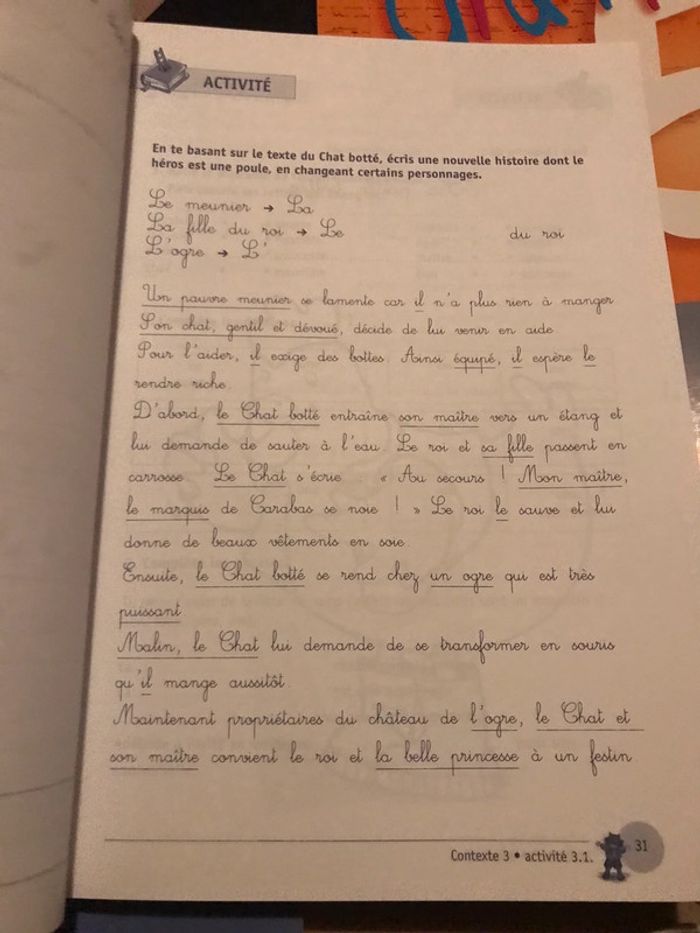 ACTIVITÉ
En te basant sur le texte du Chat botté, écris une nouvelle histoire dont le
héros est une poule, en changeant certains personnages.
Le meunier → La
La fille du roi → Le du roi
L'ogre → L'
Un pauvre meunier se lamente car il n'a plus rien à manger
Son chat, gentil et dévoué, décide de lui venir en aide.
Pour l'aider, il exige des bottes. Ainsi équipé, il espère le
rendre riche.
D'abord, le Chat botté entraîne son maître vers un étang et
lui demande de sauter à l'eau. Le roi et sa fille passent en
carrosse. Le Chat s'écrie : « Au secours ! Mon maître,
le marquis de Carabas se noie ! » Le roi le sauve et lui
donne de beaux vêtements en soie.
Ensuite, le Chat botté se rend chez un ogre qui est très
puissant
Malin, le Chat lui demande de se transformer en souris
qu'il mange aussitôt.
Maintenant propriétaires du château de l'ogre, le Chat et
son maître convient le roi et la belle princesse à un festin.
Contexte 3 • activité 3.1.
31